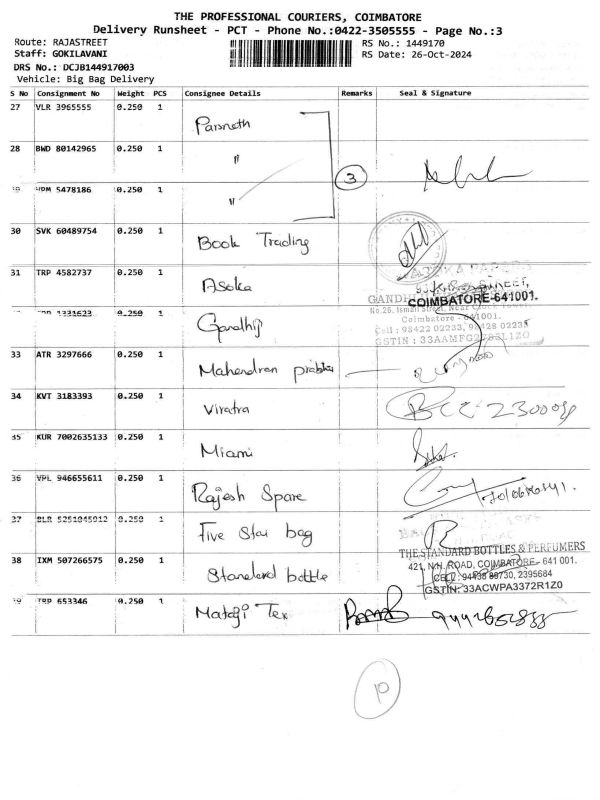 THE PROFESSIONAL COURIERS, COIMBATORE
Delivery Runsheet - PCT - Phone No.:0422-3505555 - Page No.:3
Route: RAJASTREET
RS No.: 1449170
Staff: GOKILAVANI
RS Date: 26-Oct-2024
DRS No.: DCJB144917003
Vehicle: Big Bag Delivery
S No Consignment No Weight PCS Consignee Details Remarks Seal & Signature
27 VLR 3965555 0.250 1 Parsnath
28 BWD 80142965 0.250 1 "
3
5478186 0.250 1 "
30 SVK 60489754 0.250 1 Book Trading
31 TRP 4582737 0.250 1 Asoka
COIMBATORE-641001.
1331623 0.250 1 Gandhiji
No.26, Ismail Street, Near Clock Tower
Coimbatore - 641001.
Cell : 98422 02233, 98428 02233
33 ATR 3297666 0.250 1 Mahendran prabhu
34 KVT 3183393 0.250 1 Viratra
35 KUR 7002635133 0.250 1 Miami
36 VPL 946655611 0.250 1 Rajesh Spare
37 BLR 5251045012 0.250 1 Five Star bag
THE STANDARD BOTTLES & PERFUMERS
421, N.H. ROAD, COIMBATORE - 641 001.
GSTIN: 33ACWPA3372R1Z0
38 IXM 507266575 0.250 1 Standard bottle
TRP 653346 0.250 1 Mataji Tex
10